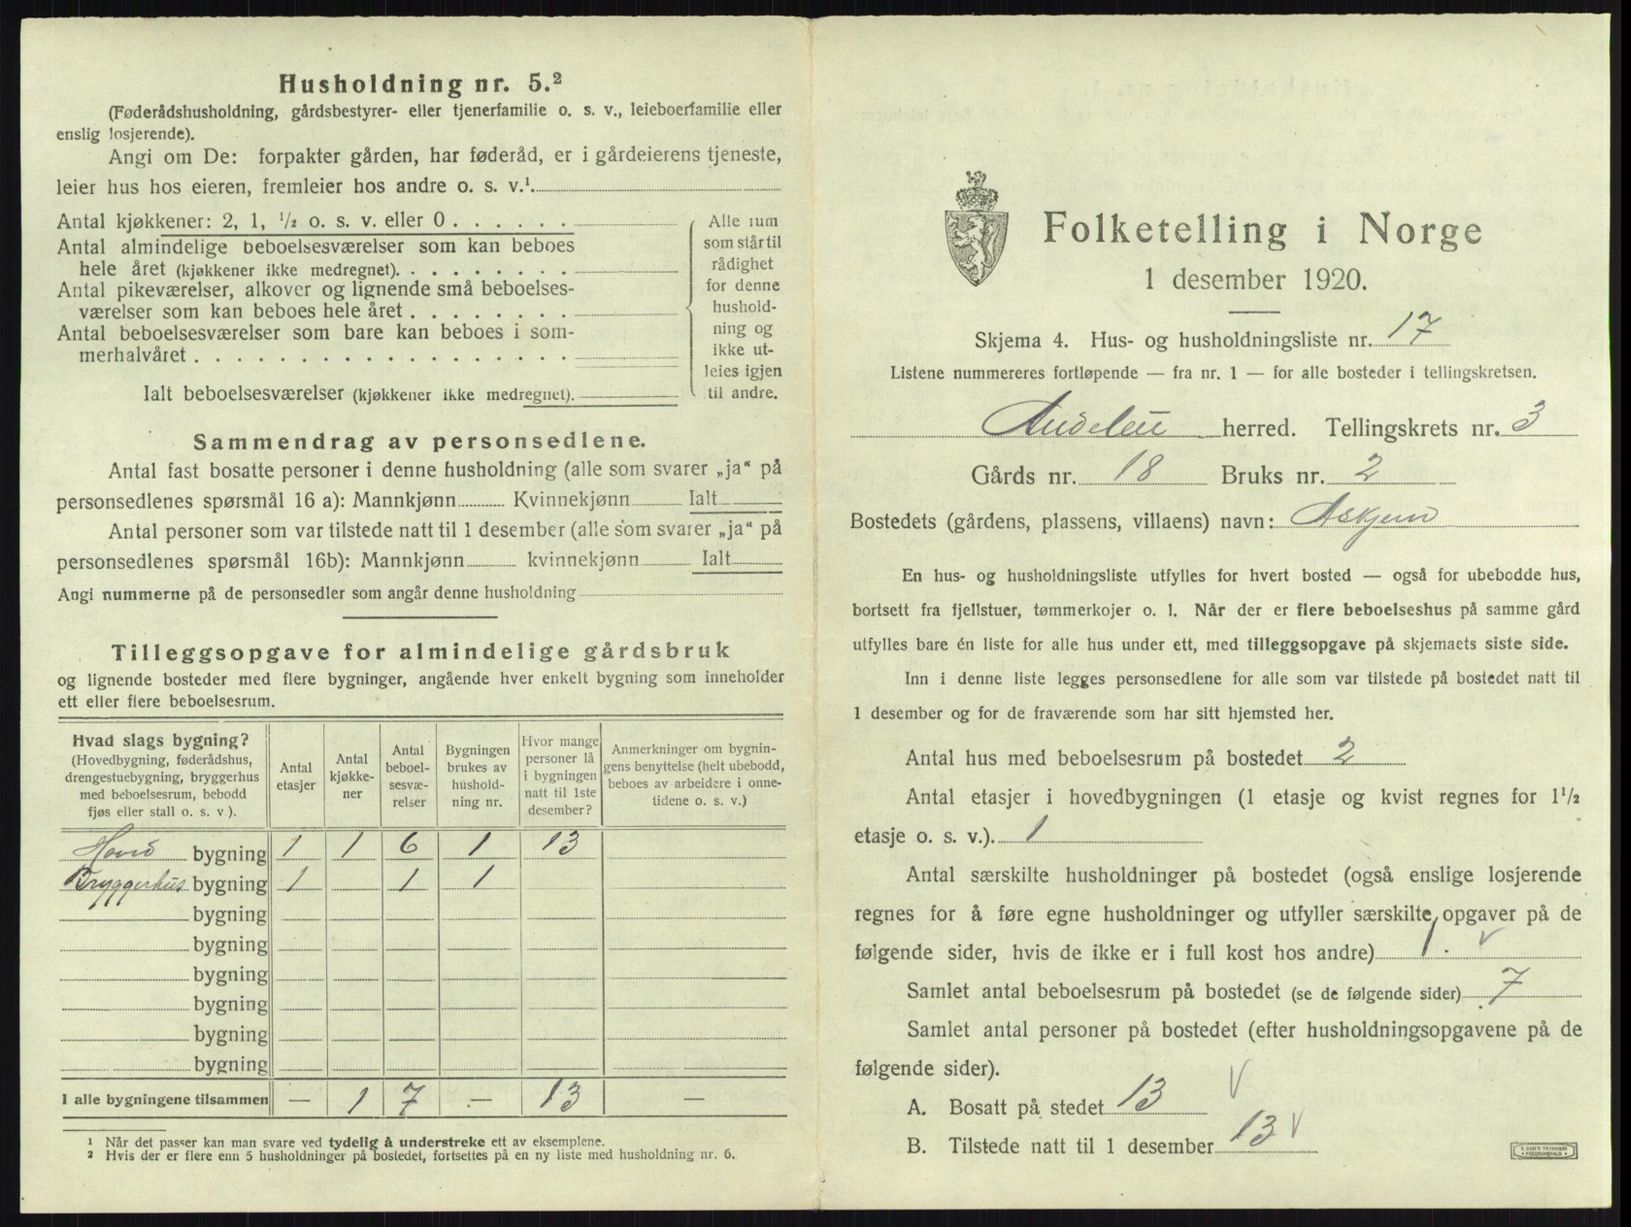 Husholdning nr. 5.²
(Føderådshusholdning, gårdsbestyrer- eller tjenerfamilie o. s. v., leieboerfamilie eller
enslig losjerende).
Angi om De: forpakter gården, har føderåd, er i gårdeierens tjeneste,
leier hus hos eieren, fremleier hos andre o. s. v.¹
Antal kjøkkener: 2, 1, ¹/₂ o. s. v. eller 0 . . . . . .
Antal almindelige beboelsesværelser som kan beboes
hele året (kjøkkener ikke medregnet). . . . . . . . .
Antal pikeværelser, alkover og lignende små beboelses-
værelser som kan beboes hele året . . . . . . . .
Antal beboelsesværelser som bare kan beboes i som-
merhalvåret . . . . . . . . . . . . . . . . . .
Alle rum
som står til
rådighet
for denne
hushold-
ning og
ikke ut-
leies igjen
til andre.
Ialt beboelsesværelser (kjøkkener ikke medregnet).
Sammendrag av personsedlene.
Antal fast bosatte personer i denne husholdning (alle som svarer „ja“ på
personsedlenes spørsmål 16 a): Mannkjønn Kvinnekjønn Ialt
Antal personer som var tilstede natt til 1 desember (alle som svarer „ja“ på
personsedlenes spørsmål 16b): Mannkjønn kvinnekjønn Ialt
Angi nummerne på de personsedler som angår denne husholdning
Tilleggsopgave for almindelige gårdsbruk
og lignende bosteder med flere bygninger, angående hver enkelt bygning som inneholder
ett eller flere beboelsesrum.
Hvad slags bygning?
(Hovedbygning, føderådshus,
drengestuebygning, bryggerhus
med beboelsesrum, bebodd
fjøs eller stall o. s. v.).
Antal
etasjer
Antal
kjøkke-
ner
Antal
beboel-
sesvæ-
relser
Bygningen
brukes av
hushold-
ning nr.
Hvor mange
personer lå
i bygningen
natt til 1ste
desember?
Anmerkninger om bygnin-
gens benyttelse (helt ubebodd,
beboes av arbeidere i onne-
tidene o. s. v.)
Hoved bygning 1 1 6 1 13
Bryggerhus bygning 1 1 1
bygning
bygning
bygning
bygning
bygning
bygning
I alle bygningene tilsammen — 1 7 — 13 —
¹ Når det passer kan man svare ved tydelig å understreke ett av eksemplene.
² Hvis der er flere enn 5 husholdninger på bostedet, fortsettes på en ny liste med husholdning nr. 6.
Folketelling i Norge
1 desember 1920.
Skjema 4. Hus- og husholdningsliste nr. 17
Listene nummereres fortløpende — fra nr. 1 — for alle bosteder i tellingskretsen.
Andebu herred. Tellingskrets nr. 3
Gårds nr. 18 Bruks nr. 2
Bostedets (gårdens, plassens, villaens) navn: Askjem
En hus- og husholdningsliste utfylles for hvert bosted — også for ubebodde hus,
bortsett fra fjellstuer, tømmerkojer o. l. Når der er flere beboelseshus på samme gård
utfylles bare én liste for alle hus under ett, med tilleggsopgave på skjemaets siste side.
Inn i denne liste legges personsedlene for alle som var tilstede på bostedet natt til
1 desember og for de fraværende som har sitt hjemsted her.
Antal hus med beboelsesrum på bostedet 2
Antal etasjer i hovedbygningen (1 etasje og kvist regnes for 1¹/₂
etasje o. s. v.). 1
Antal særskilte husholdninger på bostedet (også enslige losjerende
regnes for å føre egne husholdninger og utfyller særskilte opgaver på de
følgende sider, hvis de ikke er i full kost hos andre) 1.
Samlet antal beboelsesrum på bostedet (se de følgende sider) 7
Samlet antal personer på bostedet (efter husholdningsopgavene på de
følgende sider).
A. Bosatt på stedet 13
B. Tilstede natt til 1 desember 13